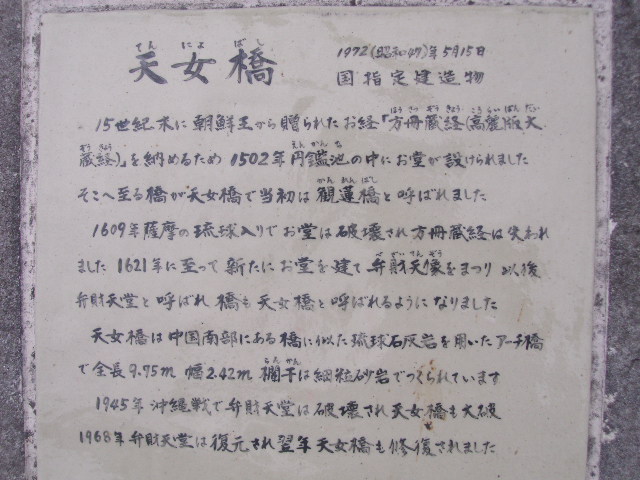 てんにょばし
天女橋
1972(昭和47)年5月15日
国指定建造物
15世紀末に朝鮮王から贈られたお経「方冊蔵経(高麗版大
蔵経)」を納めるため1502年円鑑池の中にお堂が設けられました
そこへ至る橋が天女橋で当初は観蓮橋と呼ばれました
1609年薩摩の琉球入りでお堂は破壊され方冊蔵経は失われ
ました1621年に至って新たにお堂を建て弁財天像をまつり以後
弁財天堂と呼ばれ橋も天女橋と呼ばれるようになりました
天女橋は中国南部にある橋に似た琉球石灰岩を用いたアーチ橋
で全長9.75m幅2.42m欄干は細粒砂岩でつくられています
1945年沖縄戦で弁財天堂は破壊され天女橋も大破
1968年弁財天堂は復元され翌年天女橋も修復されました